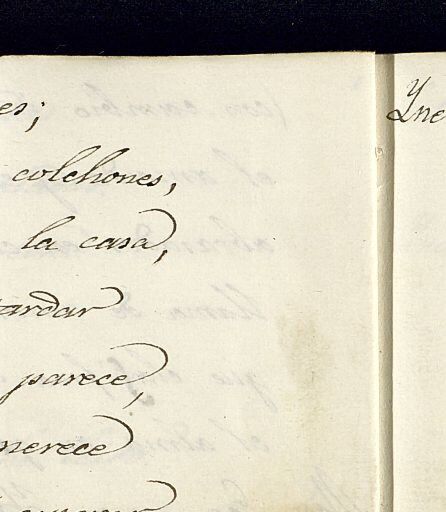 es;
colchones,
la casa,
tardar
parece,
merece
Yne